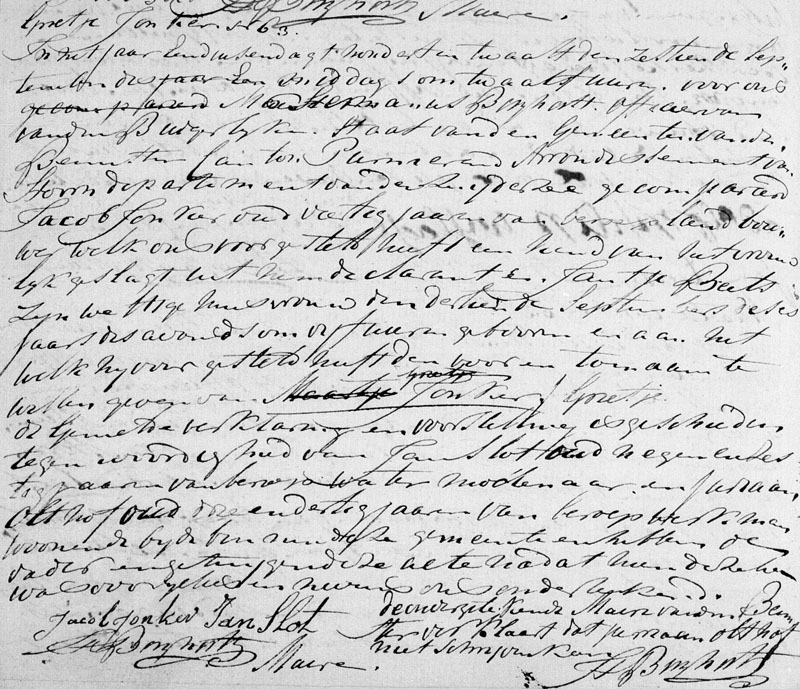 Maire.
Grietje Jonker. N 63.
In het jaar Eenduisendagt honderten twaalf den zestiende Sep„
tember des Jaar Een middags om twaalf uuren. voor ons
Hermanus Bonhott. officier van
van den Burgerlyken Staat van den Gemeente van de
Beemster Canton Purmerend Arrondissement van
Hoorn departement van de Zuyderzee gecompareerd
Jacob Jonker oud veertig jaaren van beroep landbou„
wer welk ons voorgesteld heeft een kind van het vrouw„
lyk geslagt uit hem declarant En Jantje Beets
Zyn wettige huisvrouw den dertiende September deses
jaars des avonds om vyf uuren gebooren en aan het
welk hy voorgesteld heeft den voor en toenaam te
grietje
willen geeven van Maartje Jonker / Grietje
de Gemelde verklaring en voorstelling is geschied in
tegenwoordigheid van Jan Slot oud negenenses„
tig jaaren van beroep watermolenaar en Jurriaan
Olthof oud drie en dertig jaaren van beroep werkman
woonende byde binnen deze gemeente en hebben de
vader en getuigen deze acte nadat hun dezelve
was voorgeleesen nevens ons onderteekend.
Jacob Jonker Jan Slot
de ondergetekende Maire van den Beem
ster verklaart dat Jurriaan Olthof
niet schryven kan
Maire.